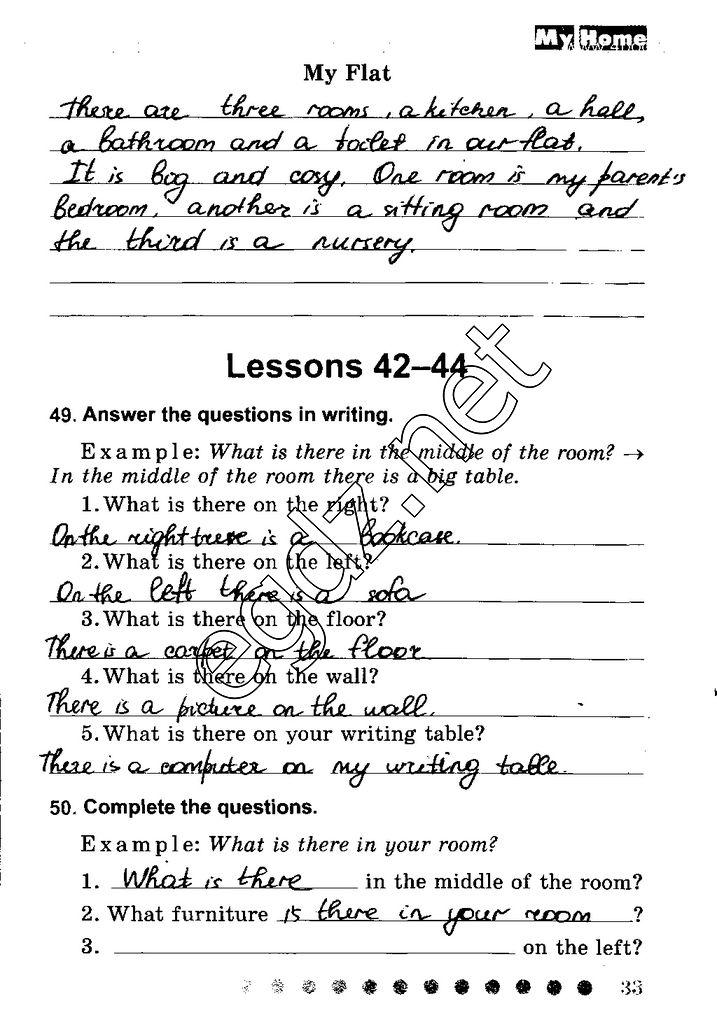 My Home
My Flat
There are three rooms, a kitchen, a hall,
a bathroom and a toilet in our flat.
It is big and cosy. One room is my parent's
Bedroom, another is a sitting room and
the third is a nursery.
Lessons 42–44
49. Answer the questions in writing.
Example: What is there in the middle of the room? →
In the middle of the room there is a big table.
1. What is there on the right?
On the right there is a bookcase.
2. What is there on the left?
On the left there is a sofa
3. What is there on the floor?
There is a carpet on the floor
4. What is there on the wall?
There is a picture on the wall.
5. What is there on your writing table?
There is a computer on my writing table.
50. Complete the questions.
Example: What is there in your room?
1. What is there in the middle of the room?
2. What furniture is there in your room ?
3. on the left?
33
egdz.net